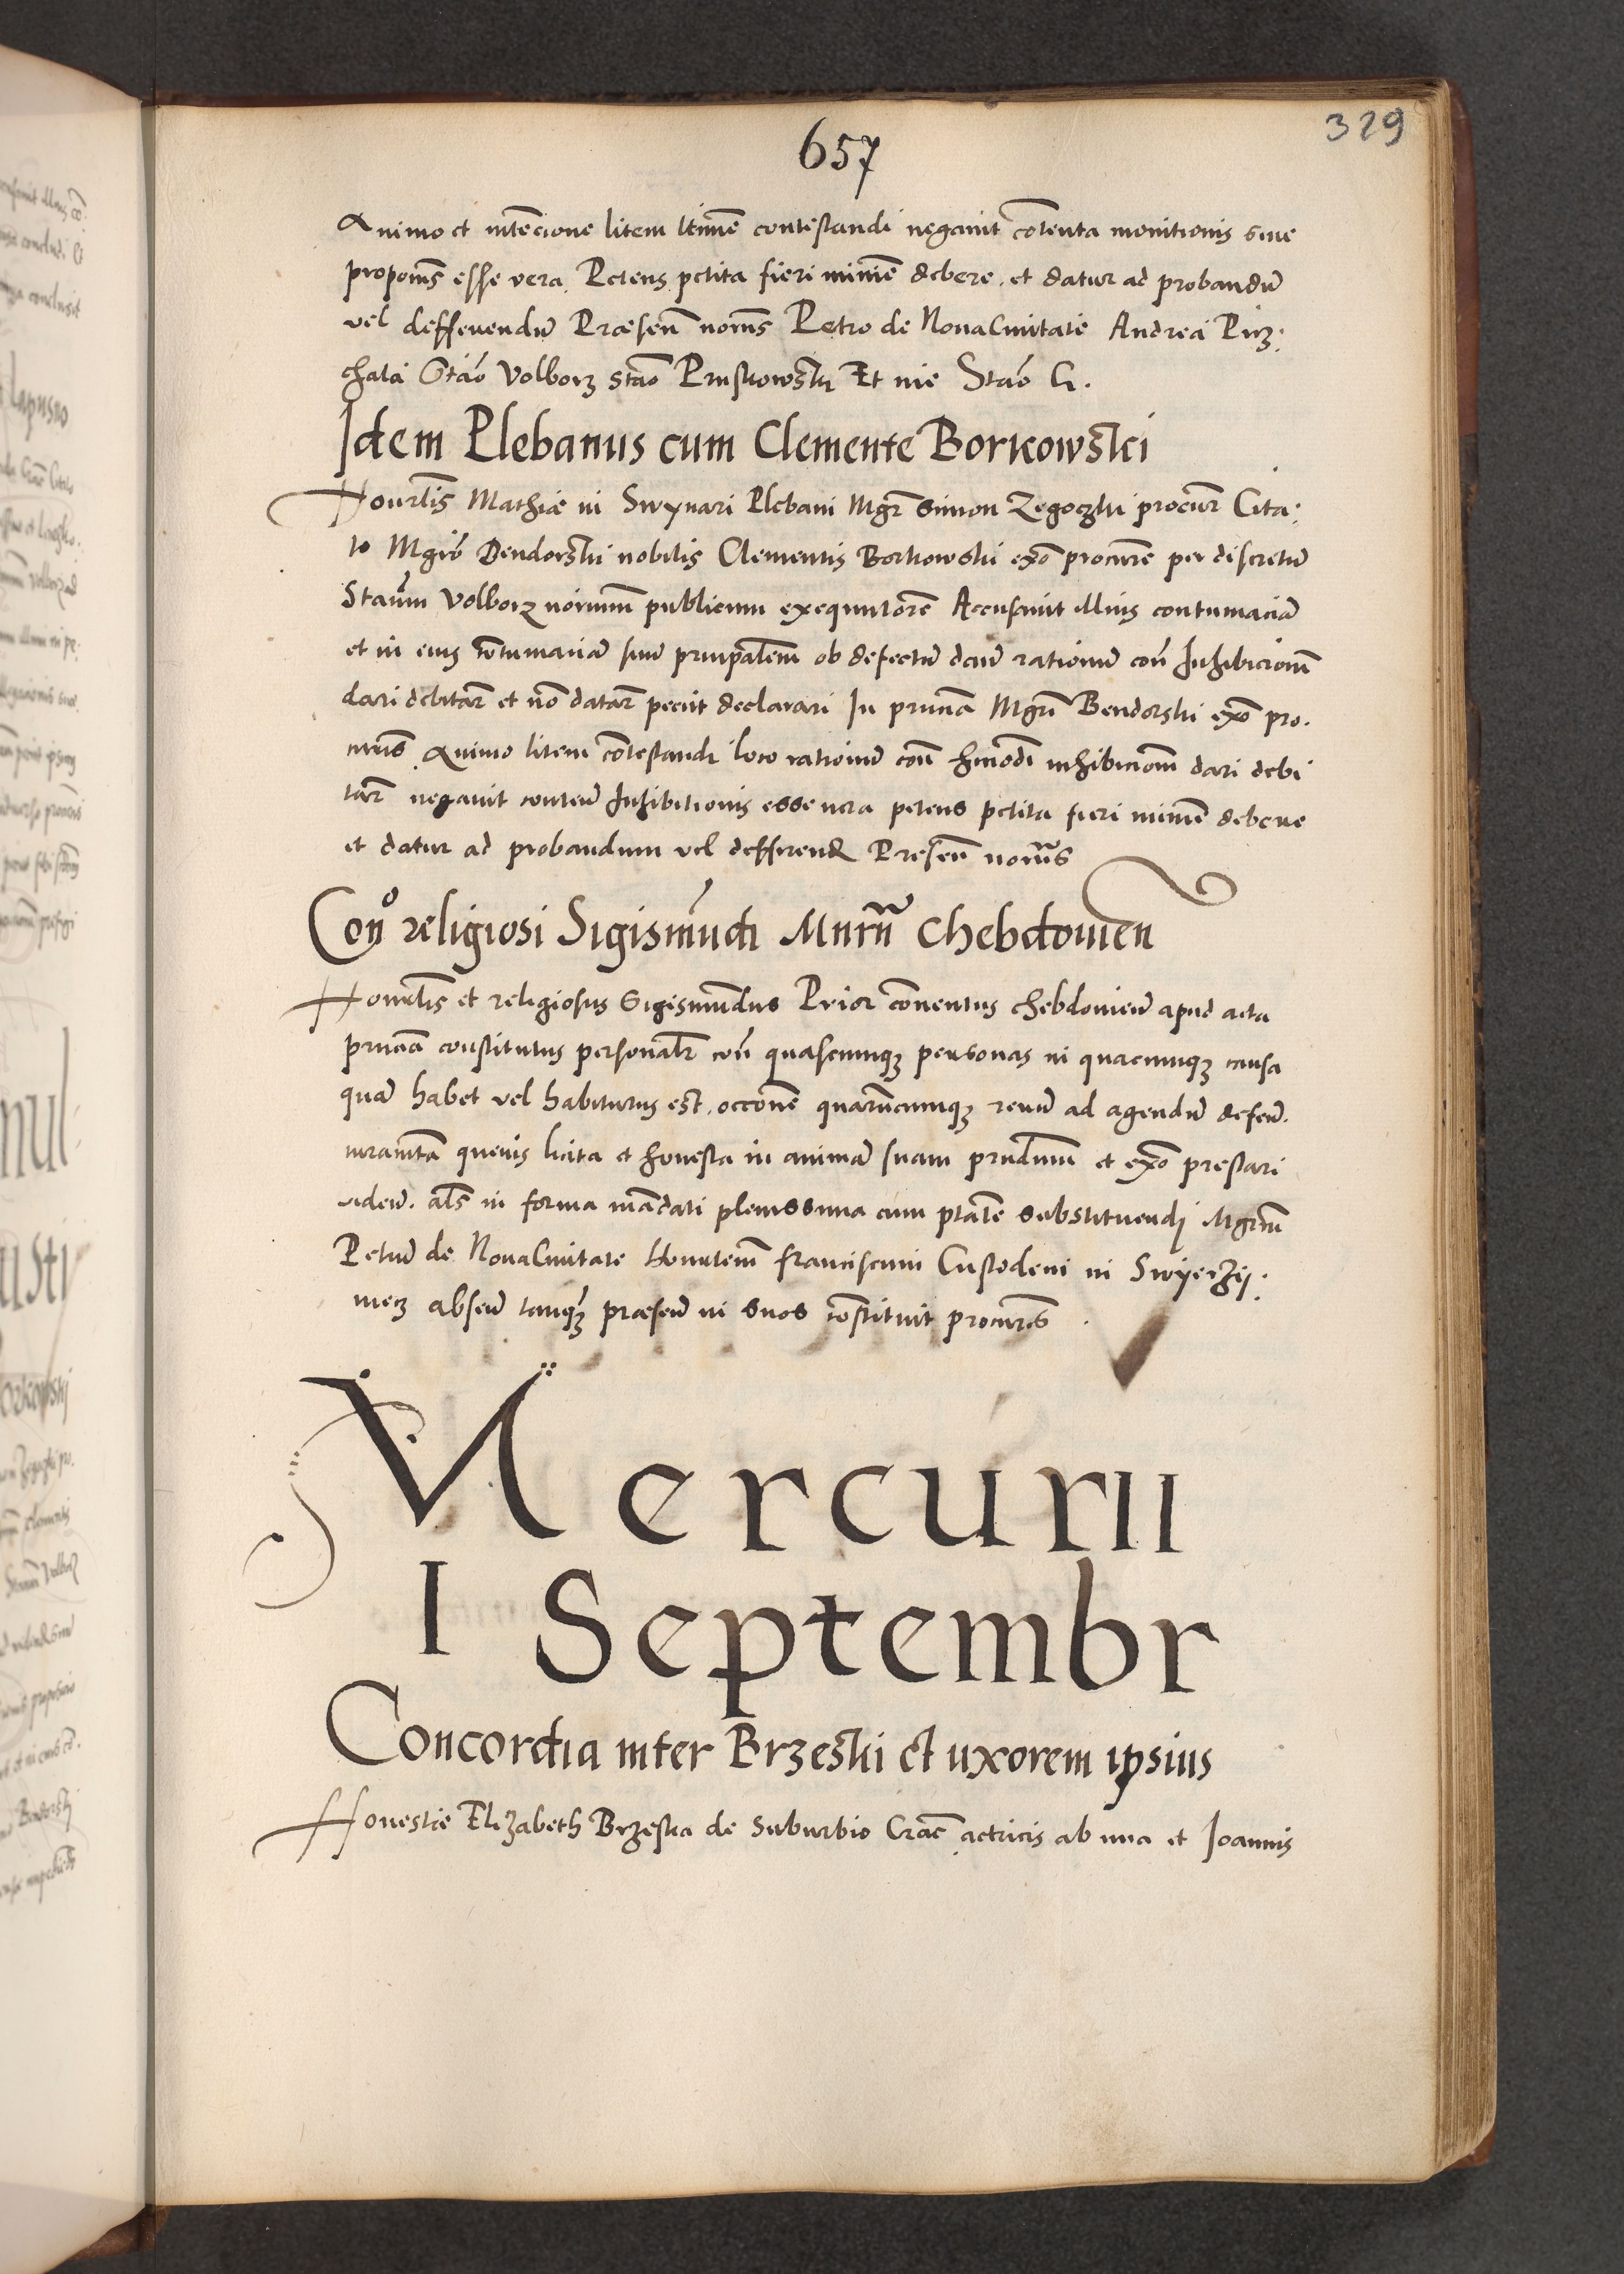 329
657
Animo et intēcione litem ltimē contestandi negavit cōtenta monitionis sive
propoītis esse vera. Petens petita fieri minimē debere. et datur ad probandū
vel deffenendū Præsen̄ notr̄is Petro de Nova Civitate Andrea Piz:
chala Stāo Volborz stāo Pruskowski Et me Stāo G.
Idem Plebanus cum Clemente Borkowski
Honorl̄is Mathiæ in Swynari Plebani Mgr̄ Simon Zegoczki procur̄ Cita:
to Mgr̄o Bendorski nobilis Clementis Borkowski ex̄o procurē per discretū
Stan̄um Volborz notm̄ publicum exequutorē Accusavit illius contumaciā
et in eius cōtumaciā suū prīnpalem ob defectū dictū rationū con̄ Inhibicionī
dari debitar̄ et nō datar̄ peciit declarari In prn̄tia Mgr̄i Bendorski ex̄o pro.
curīs Animo litem cōtestandi loco rationū con̄ hmōdi inhibicionī dari debi
tar̄ negavit conten̄ Inhibitionis esse vera petens petita fieri minimē debere
et datur ad probandum vel defferend Presen̄ notr̄is
Con̄o religiosi Sigismūdi Mnrn̄ Chebdovien
Honorl̄is et religiosus Sigismūndus Prior cōnentus Chebdovien̄ apud acta
prn̄tia constitutus personalr̄ con̄ quascunqz personas in quacunqz causa
quā habet vel habiturus est. occōnē quarūncunqz rerū ad agendū defen̄.
iuramtā quevis licita et honesta in animā suam prnd̄mm et ex̄o prestari
viden̄. al̄s in forma mādati plenissima cum ptātē substituendi Mgrūm
Petrū de Nova Civitate Honorlem Franciscum Custodem in Swyerzy:
niecz absen̄ tanqz̄ præsen̄ in suos cōstituit procurēs.
Mercurii
I Septembr
Concordia inter Brzeski et uxorem ipsius
Honestæ Elizabeth Brzeska de Suburbio Crac̄ actricis ab una et Joannis